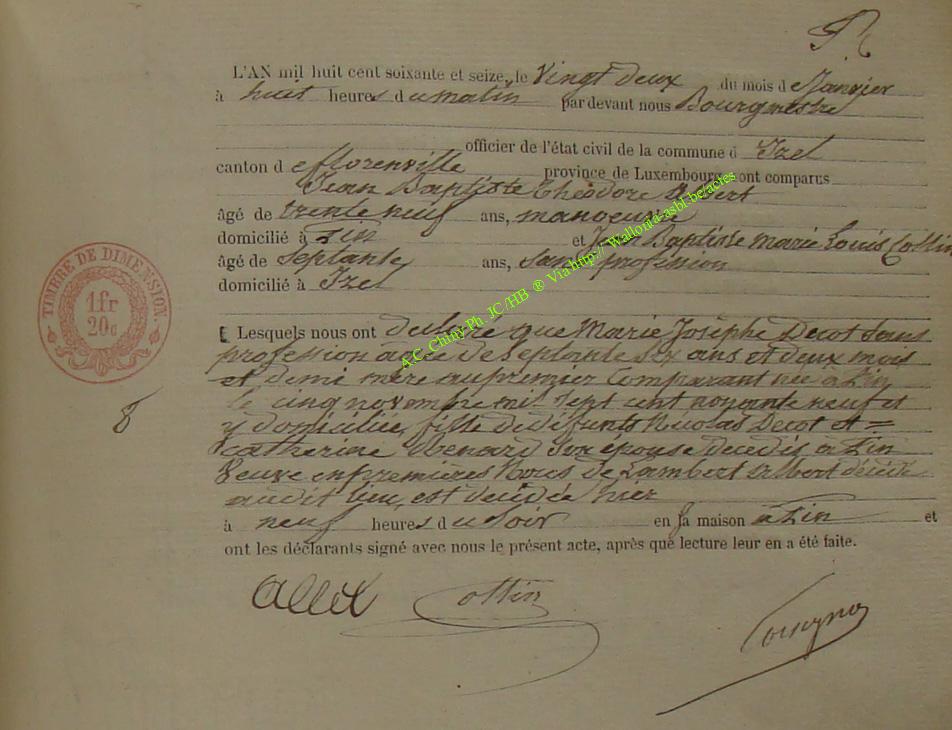 L'AN mil huit cent soixante et seize, le Vingt deux du mois de Janvier
à huit heures du matin par devant nous Bourgmestre
officier de l'état civil de la commune d Izel
canton de florenville province de Luxembourg, ont comparus
Jean Baptiste Théodore
âgé de trente neuf ans, manoeuvre
domicilié à Pin et Jean Baptiste marie Louis Collin
âgé de Septante ans, sans profession
domicilié à Izel
TIMBRE DE DIMENSION.
1fr
20c
Lesquels nous ont déclaré que Marie Josèphe Decot sans
profession agée de Septante six ans et deux mois
et demi mère au premier Comparant née à Pin
le cinq novembre mil sept cent nonante neuf et
y domiciliée, fille de défunts Nicolas Decot et =
Catherine son épouse décédés à Pin
Veuve en premières Noces de Lambert décédé
audit lieu, est décédée hier
8
à neuf heures du soir en sa maison à Pin et
ont les déclarants signé avec nous le présent acte, après que lecture leur en a été faite.
Collin
A.C. Chiny Ph. JC/HB ® Via http:// Wallonia-asbl-be/actes